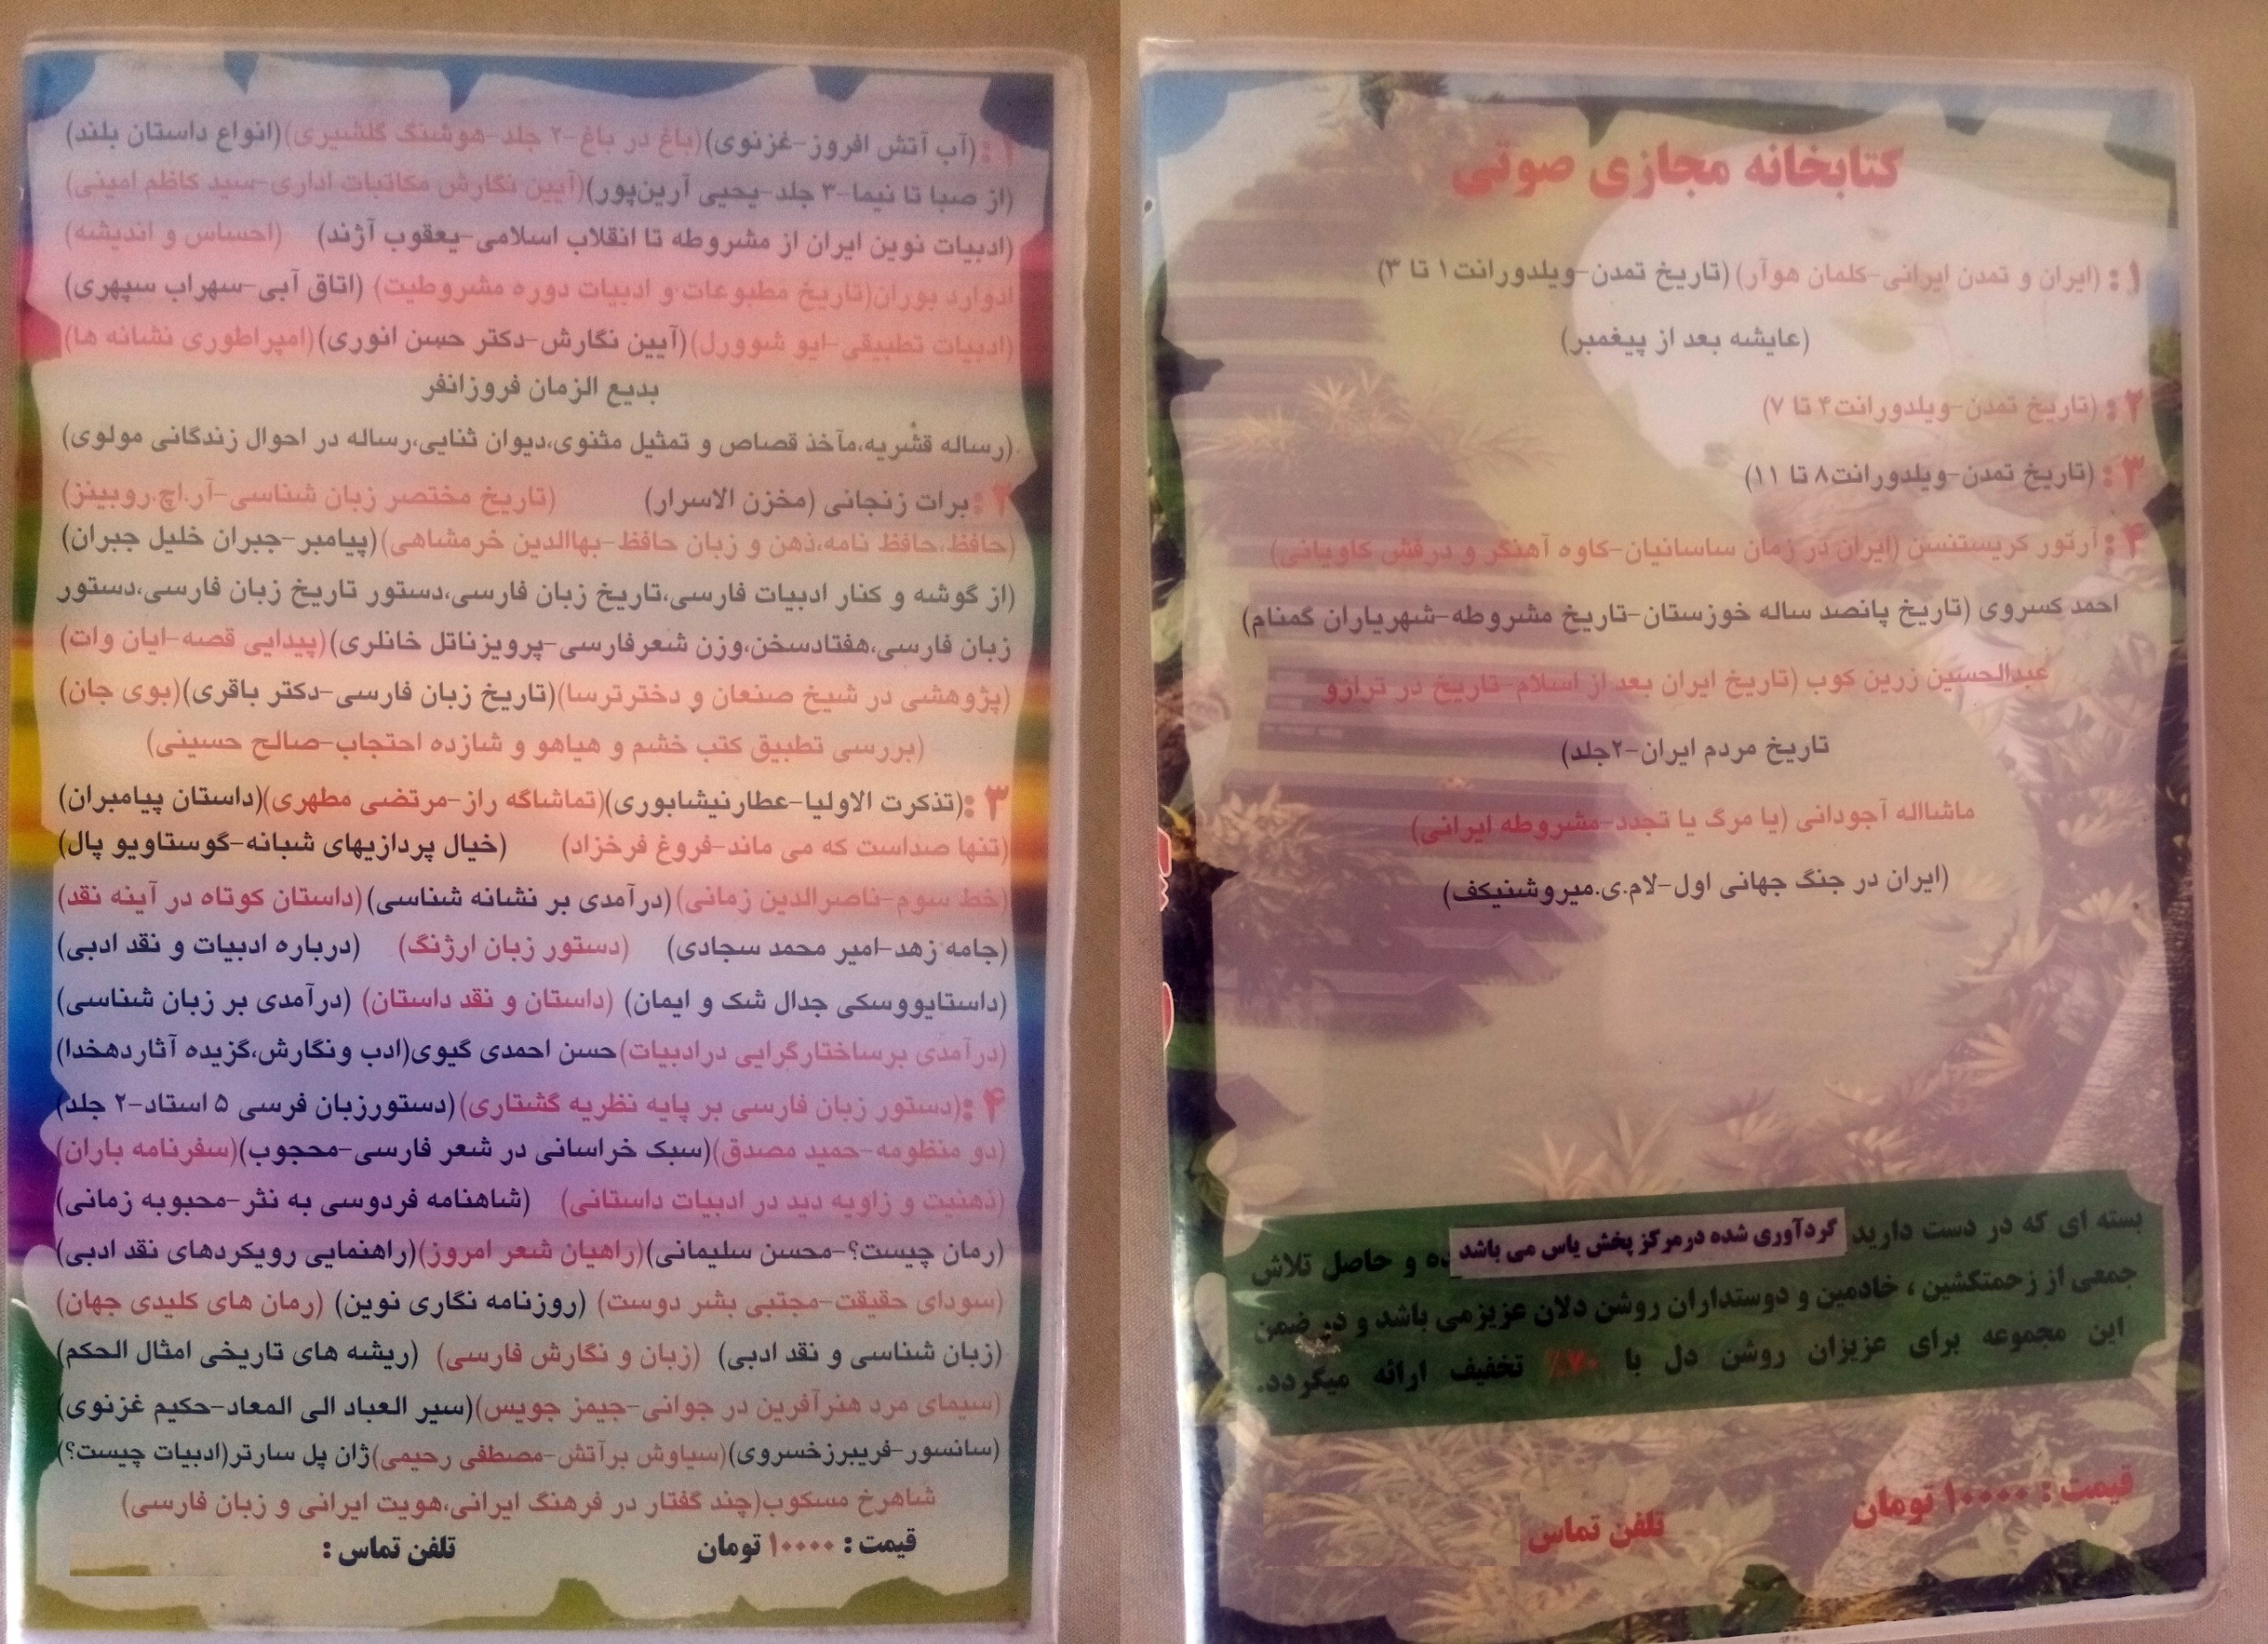 ۱: (آب آتش افروز-غزنوی)(باغ در باغ-۲ جلد-هوشنگ گلشیری)(انواع داستان بلند)
(از صبا تا نیما-۳ جلد-یحیی آرین‌پور)(آیین نگارش مکاتبات اداری-سید کاظم امینی)
(ادبیات نوین ایران از مشروطه تا انقلاب اسلامی-یعقوب آژند) (احساس و اندیشه)
ادوارد بوران(تاریخ مطبوعات و ادبیات دوره مشروطیت) (اتاق آبی-سهراب سپهری)
(ادبیات تطبیقی-ایو شوورل)(آیین نگارش-دکتر حسن انوری)(امپراطوری نشانه ها)
بدیع الزمان فروزانفر
(رساله قشریه،مآخذ قصاص و تمثیل مثنوی،دیوان ثنایی،رساله در احوال زندگانی مولوی)
۲: برات زنجانی (مخزن الاسرار) (تاریخ مختصر زبان شناسی-آر.اچ.روبینز)
(حافظ،حافظ نامه،ذهن و زبان حافظ-بهاالدین خرمشاهی)(پیامبر-جبران خلیل جبران)
(از گوشه و کنار ادبیات فارسی،تاریخ زبان فارسی،دستور تاریخ زبان فارسی،دستور
زبان فارسی،هفتادسخن،وزن شعرفارسی-پرویزناتل خانلری)(پیدایی قصه-ایان وات)
(پژوهشی در شیخ صنعان و دخترترسا)(تاریخ زبان فارسی-دکتر باقری)(بوی جان)
(بررسی تطبیق کتب خشم و هیاهو و شازده احتجاب-صالح حسینی)
۳: (تذکرت الاولیا-عطارنیشابوری)(تماشاگه راز-مرتضی مطهری)(داستان پیامبران)
(تنها صداست که می ماند-فروغ فرخزاد) (خیال پردازیهای شبانه-گوستاویو پال)
(خط سوم-ناصرالدین زمانی)(درآمدی بر نشانه شناسی)(داستان کوتاه در آینه نقد)
(جامه زهد-امیر محمد سجادی) (دستور زبان ارژنگ) (درباره ادبیات و نقد ادبی)
(داستایووسکی جدال شک و ایمان) (داستان و نقد داستان) (درآمدی بر زبان شناسی)
(درآمدی برساختارگرایی درادبیات)حسن احمدی گیوی(ادب ونگارش،گزیده آثاردهخدا)
۴: (دستور زبان فارسی بر پایه نظریه گشتاری)(دستورزبان فرسی ۵ استاد-۲ جلد)
(دو منظومه-حمید مصدق)(سبک خراسانی در شعر فارسی-محجوب)(سفرنامه باران)
(ذهنیت و زاویه دید در ادبیات داستانی) (شاهنامه فردوسی به نثر-محبوبه زمانی)
(رمان چیست؟-محسن سلیمانی)(راهیان شعر امروز)(راهنمایی رویکردهای نقد ادبی)
(سودای حقیقت-مجتبی بشر دوست) (روزنامه نگاری نوین) (رمان های کلیدی جهان)
(زبان شناسی و نقد ادبی) (زبان و نگارش فارسی) (ریشه های تاریخی امثال الحکم)
(سیمای مرد هنرآفرین در جوانی-جیمز جویس)(سیر العباد الی المعاد-حکیم غزنوی)
(سانسور-فریبرزخسروی)(سیاوش برآتش-مصطفی رحیمی)ژان پل سارتر(ادبیات چیست؟)
شاهرخ مسکوب(چند گفتار در فرهنگ ایرانی،هویت ایرانی و زبان فارسی)
قیمت : ۱۰۰۰۰ تومان تلفن تماس :
کتابخانه مجازی صوتی
۱: (ایران و تمدن ایرانی-کلمان هوآر) (تاریخ تمدن-ویلدورانت۱ تا ۳)
(عایشه بعد از پیغمبر)
۲: (تاریخ تمدن-ویلدورانت۴ تا ۷)
۳: (تاریخ تمدن-ویلدورانت۸ تا ۱۱)
۴: آرتور کریستنسن (ایران در زمان ساسانیان-کاوه آهنگر و درفش کاویانی)
احمد کسروی (تاریخ پانصد ساله خوزستان-تاریخ مشروطه-شهریاران گمنام)
عبدالحسین زرین کوب (تاریخ ایران بعد از اسلام-تاریخ در ترازو
تاریخ مردم ایران-۲جلد)
ماشااله آجودانی (یا مرگ یا تجدد-مشروطه ایرانی)
(ایران در جنگ جهانی اول-لام.ی.میروشنیکف)
بسته ای که در دست دارید گردآوری شده درمرکز پخش یاس می باشد ده و حاصل تلاش
جمعی از زحمتکشین ، خادمین و دوستداران روشن دلان عزیزمی باشد و در ضمن
این مجموعه برای عزیزان روشن دل با ۷۰٪ تخفیف ارائه میگردد.
قیمت : ۱۰۰۰۰ تومان تلفن تماس